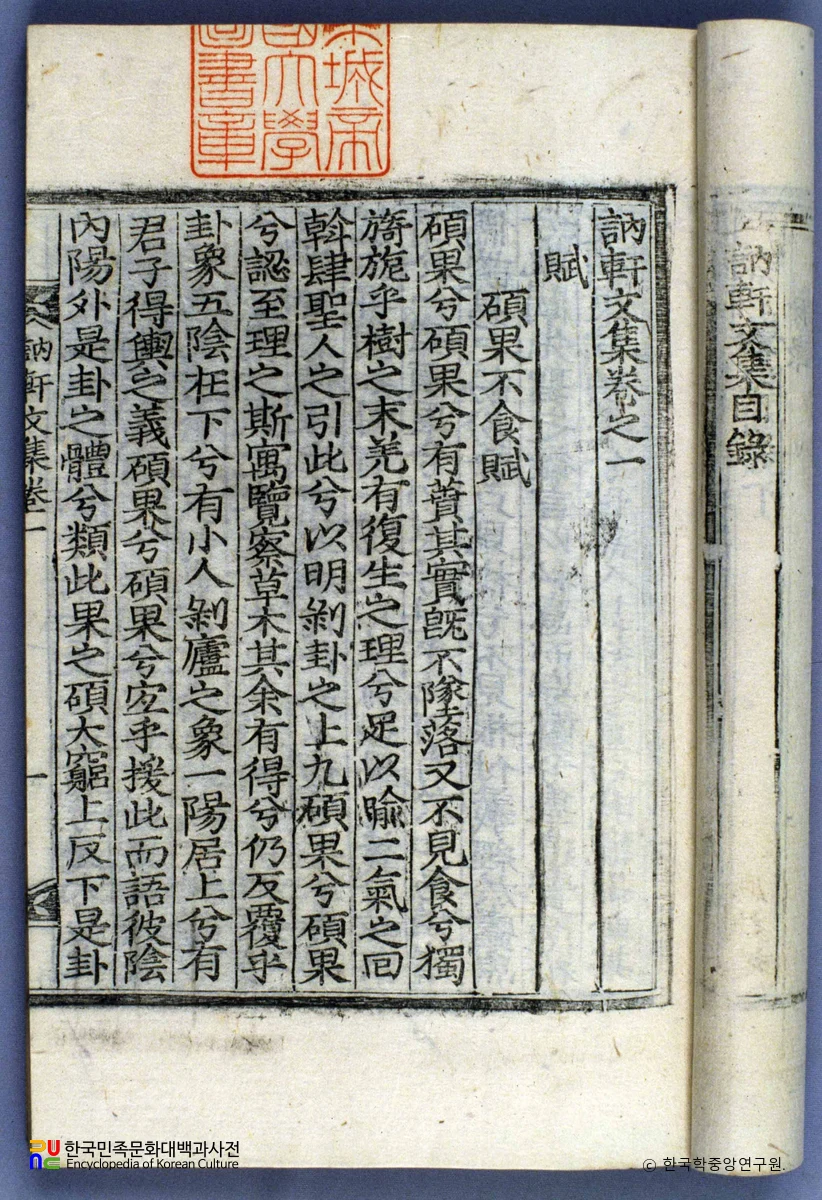 訥軒文集目錄
京城帝
國大學
圖書章
訥軒文集卷之一
賦
碩果不食賦
碩果兮碩果兮有蕡其實旣不墜落又不見食兮獨
旖旎乎樹之末羌有復生之理兮足以喩二氣之回
斡肆聖人之引此兮以明剝卦之上九碩果兮碩果
兮認至理之斯寓覽察草木其余有得兮仍反覆乎
卦象五陰在下兮有小人剝廬之象一陽居上兮有
君子得輿之義碩果兮碩果兮宜乎援此而語彼陰
內陽外是卦之體兮類此果之碩大窮上反下是卦
訥軒文集卷一
一
한국민족문화대백과사전
Encyclopedia of Korean Culture
© 한국학중앙연구원